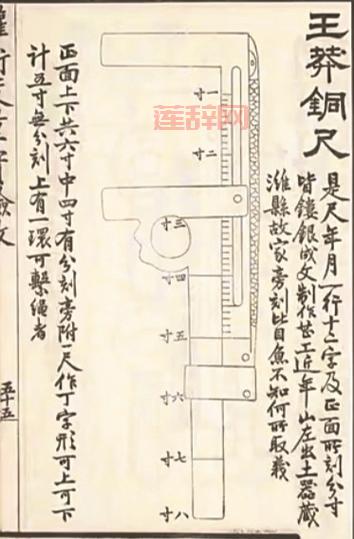 王莽銅尺
是尺年月一行十二字及正面所刻分寸
皆鏤銀成文制作甚工近年山左出土器藏
濰縣故家旁刻比目魚不知何所取義
一寸
二寸
三寸
四寸
五寸
六寸
七寸
八寸
正面上下共六寸中四寸有分刻旁附一尺作丁字形可上可下
計五寸無分刻上有一環可繫繩者
五十五
莲辞网